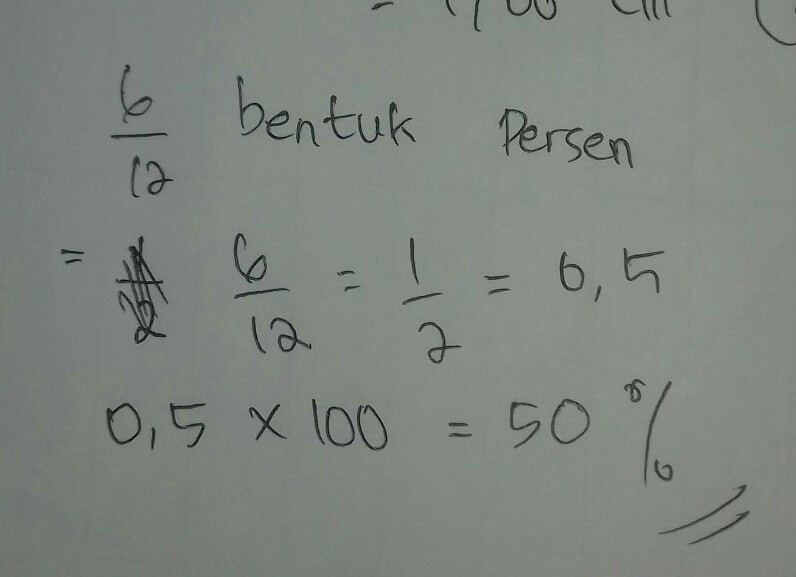 cm
6/12 bentuk Persen
= 6/12 = 1/2 = 0,5
0,5 x 100 = 50 %